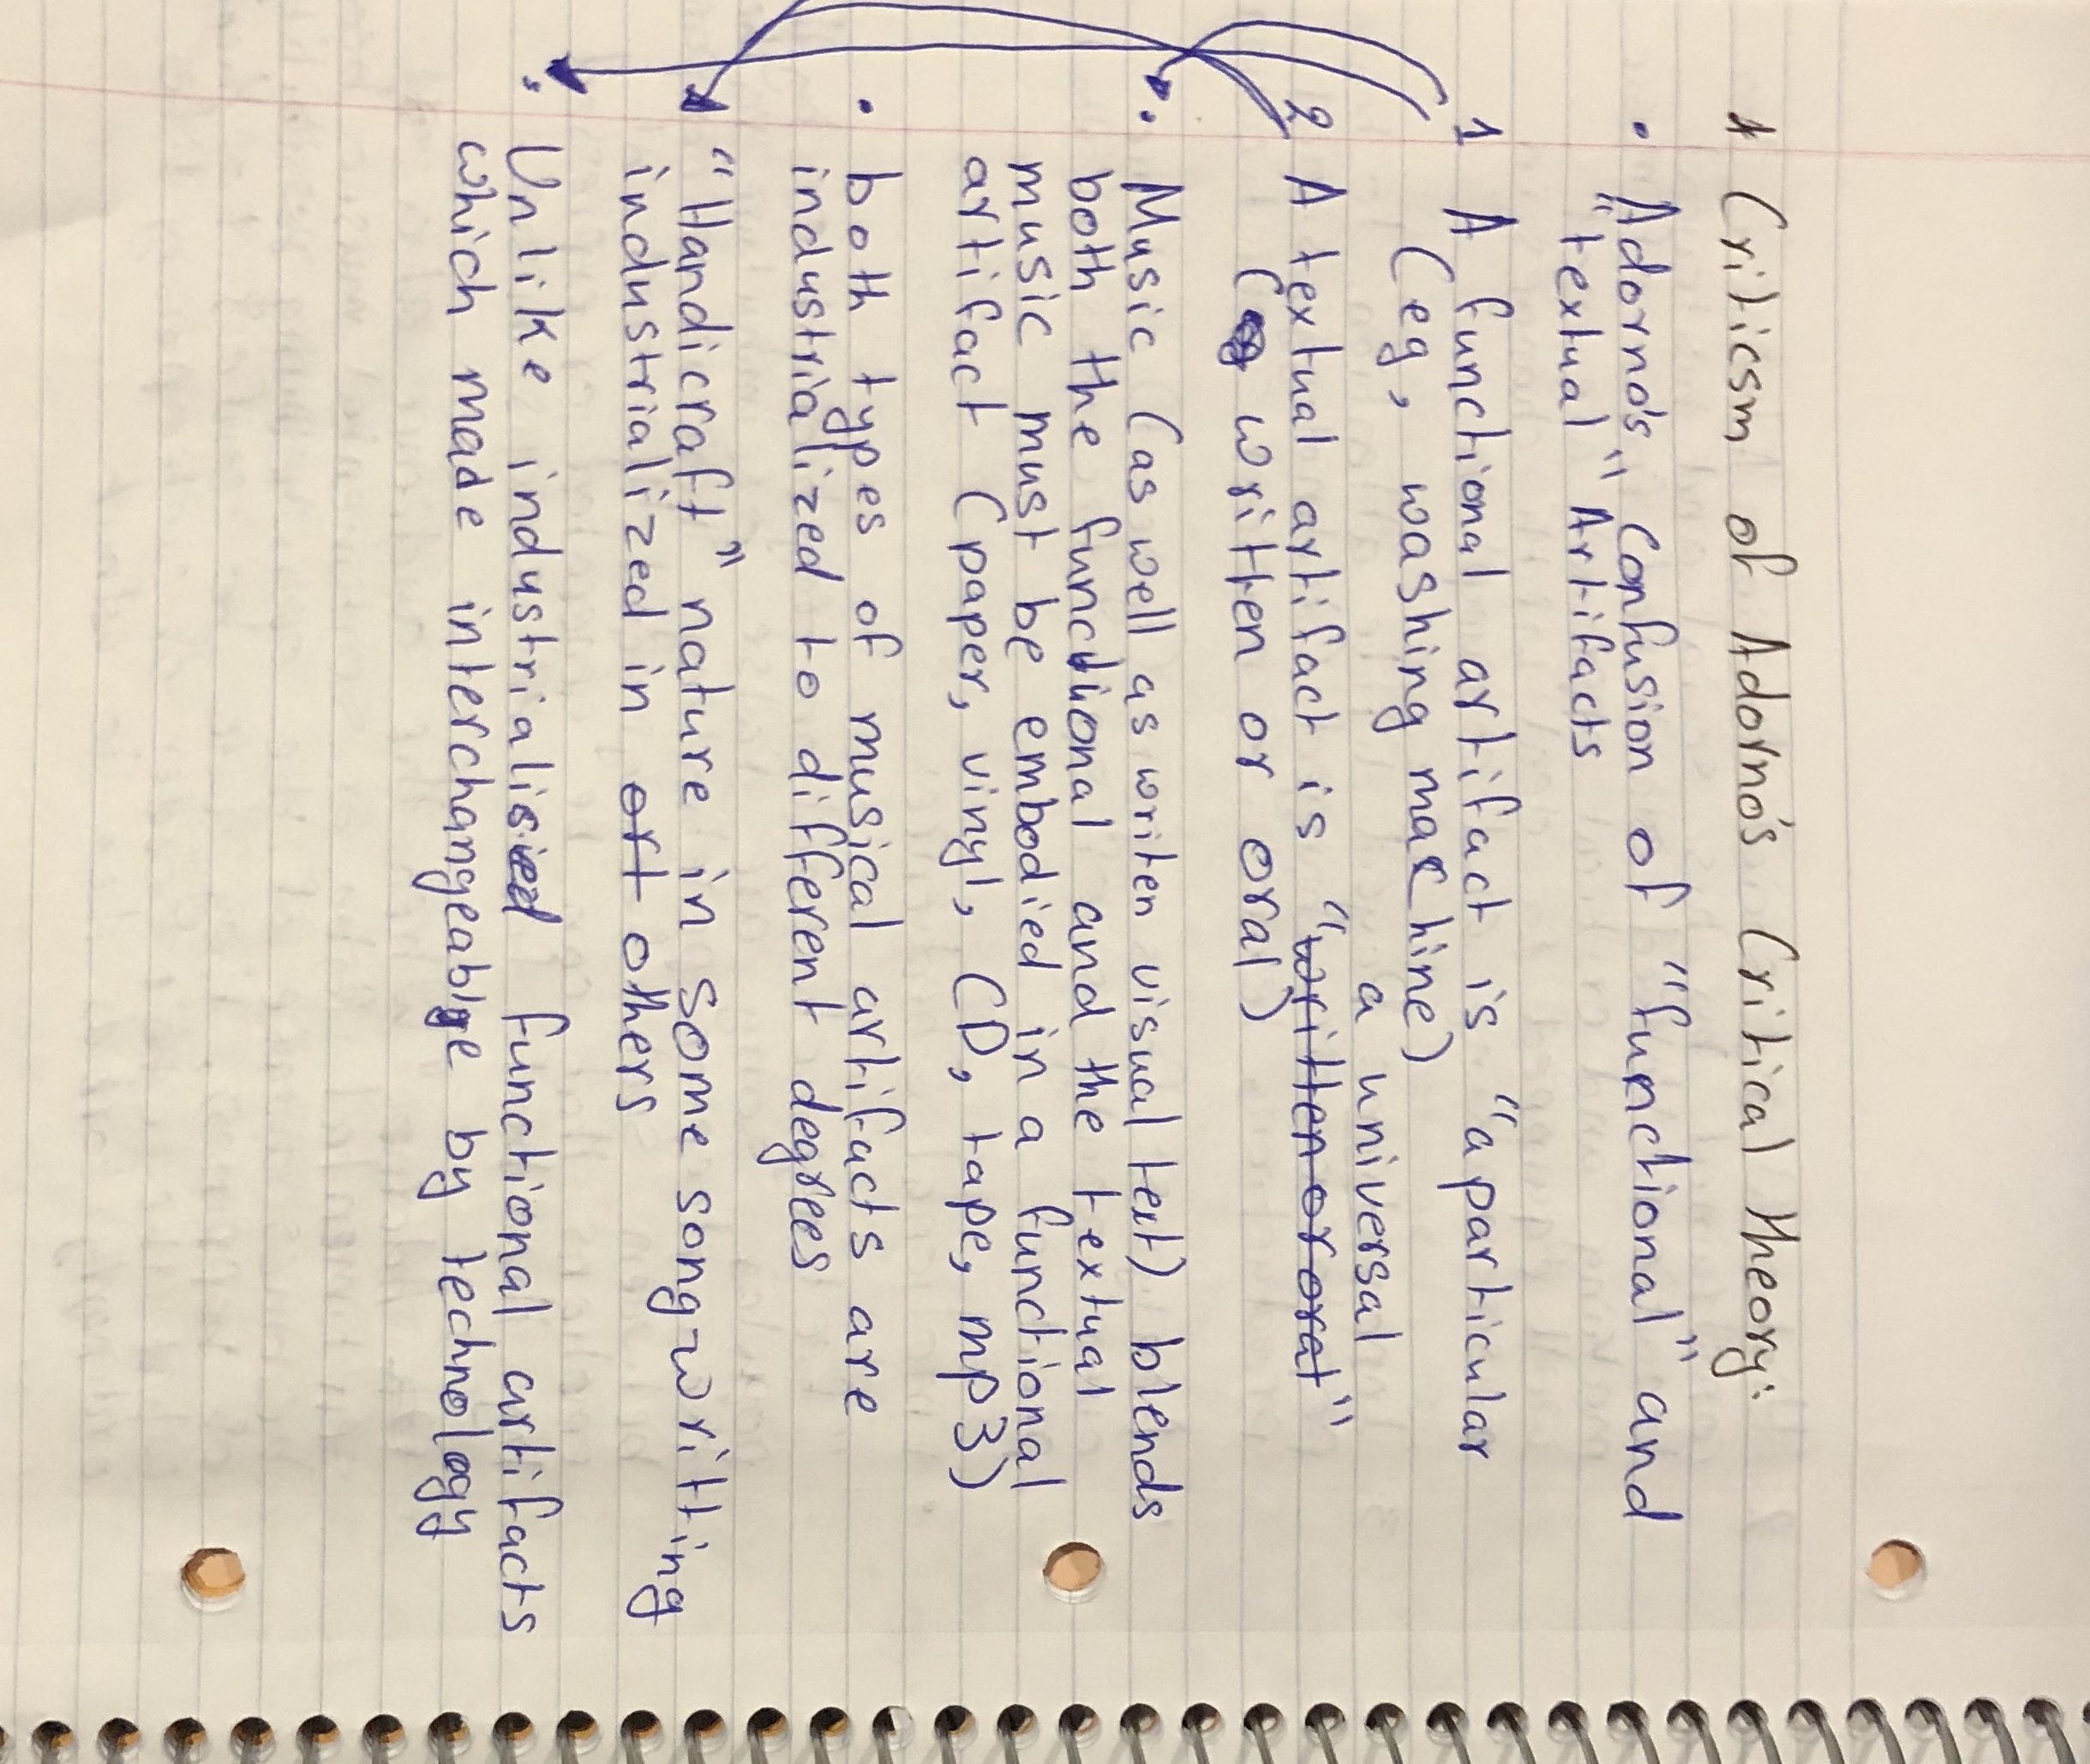 * Criticsm of Adorno's Critical Theory:
• Adorno's" Confusion of "functional" and
"textual" Artifacts
1 A functional artifact is "a particular
(eg, washing machine)
a universal
2 A textual artifact is "written or oral"
(written or oral)
• Music (as well as writen visual text) blends
both the functional and the textual
music must be embodied in a functional
artifact (paper, vinyl, CD, tape, mp3)
• both types of musical artifacts are
industrialized to different degrees
"Handicraft" nature in some song-writting
industrialized in oft others
• Unlike industrialised functional artifacts
which made interchangeable by technology